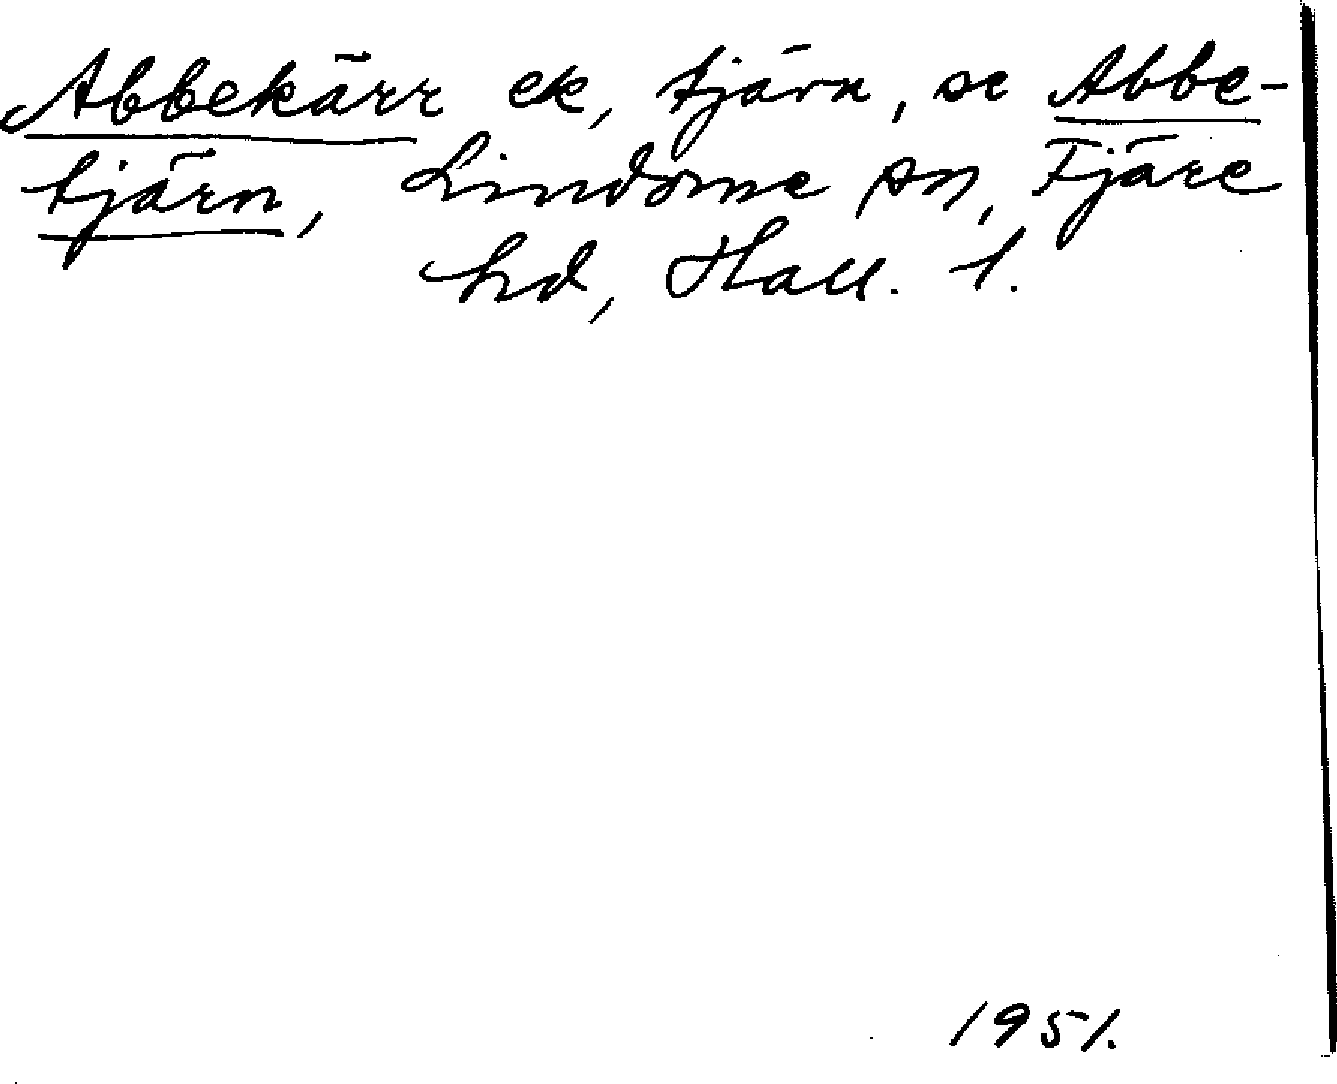 Abbekärr ek, tjärn, se Abbe-
tjärn, Lindome sn, Fjäre
hd, Hall. l.
1951.